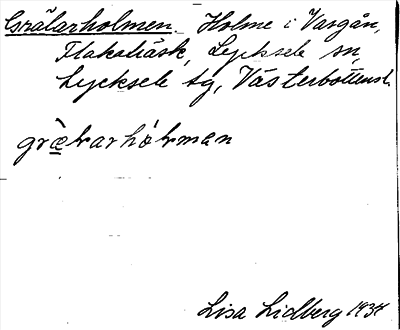 Grälarholmen. Holme i Vargån,
Flakaträsk, Lycksele sn,
Lycksele tg, Västerbottensl.
græ̀ɫarhòɫman
Lisa Lidberg 1934